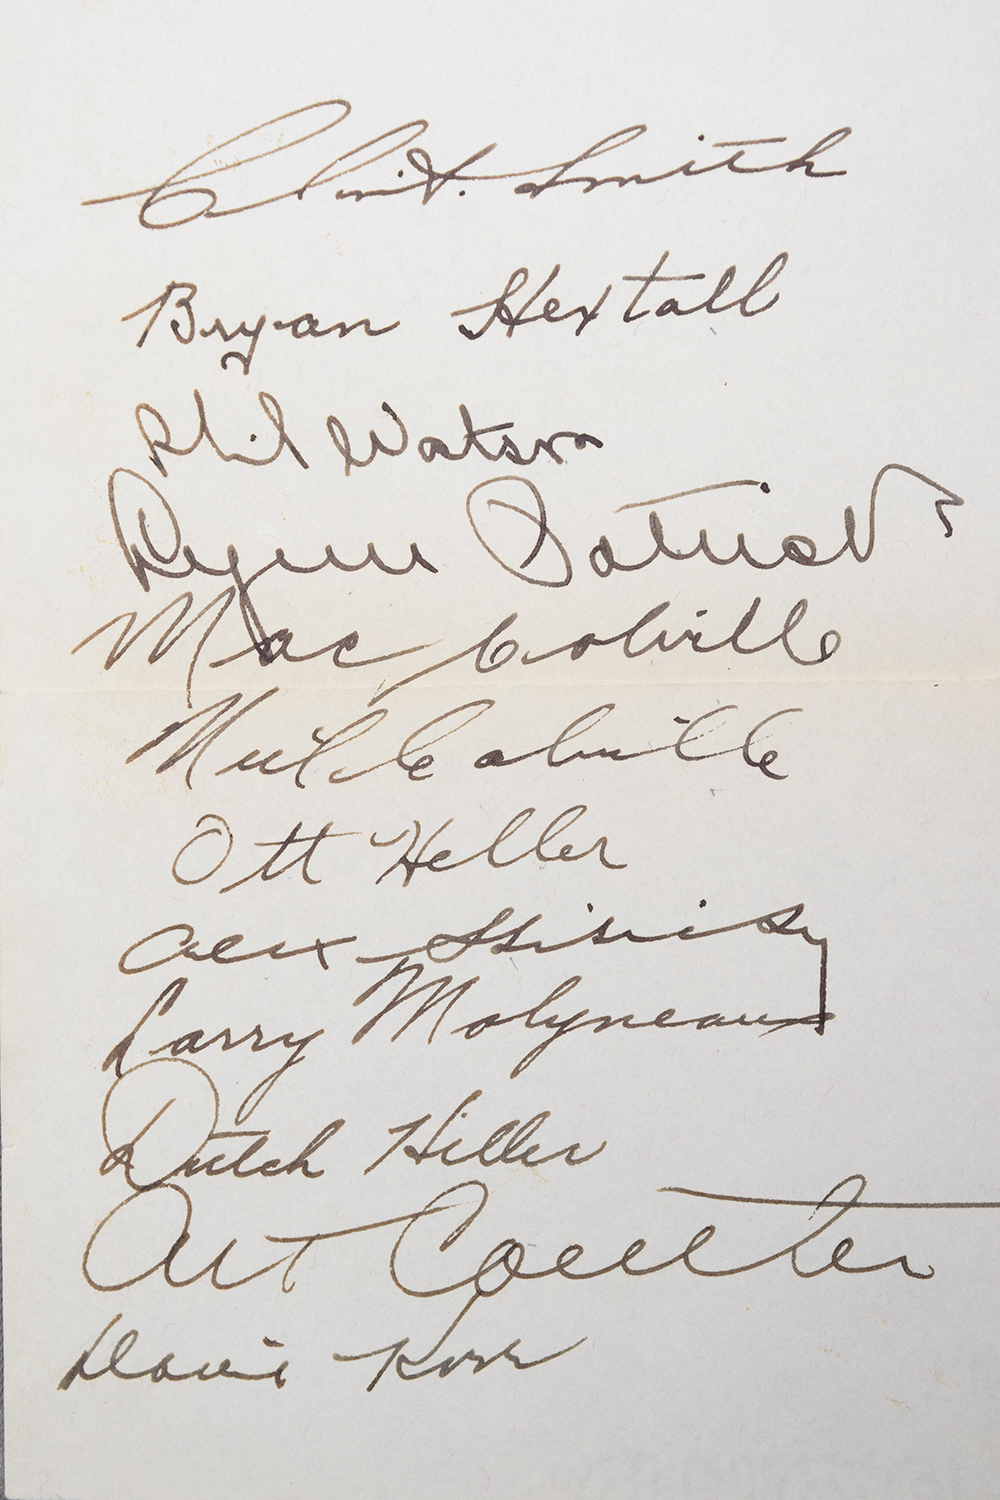 Clint. Smith
Bryan Hextall
Phil Watson
Lynn Patrick
Mac Colville
Neil Colville
Ott Heller
Alex Shibicky
Larry Molyneaux
Dutch Hiller
Art Coulter
Davie Kerr